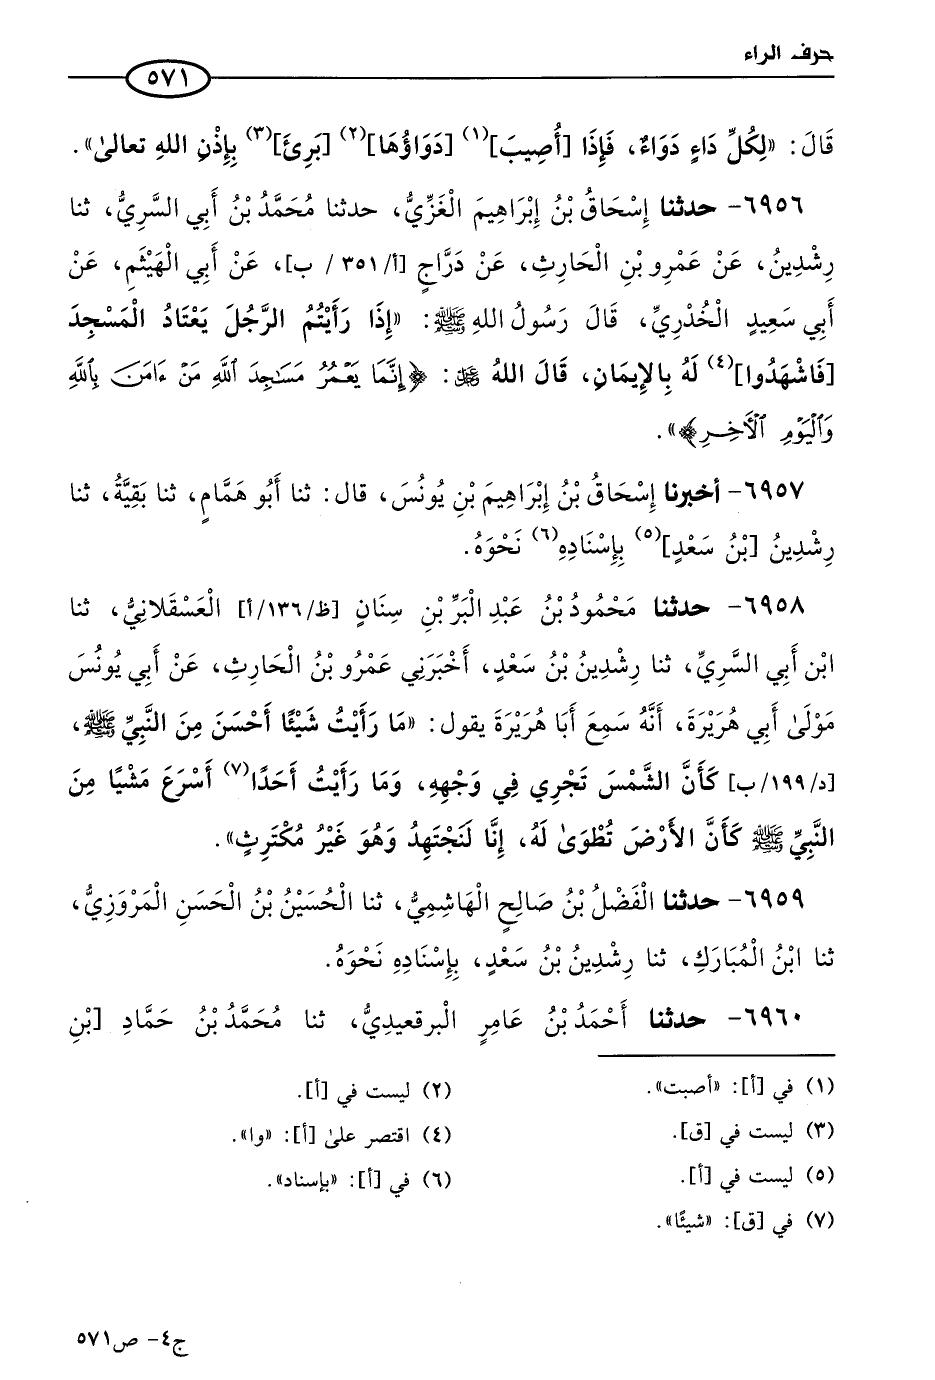 حرف الراء
٥٧١
قَالَ: «لِكُلِّ دَاءٍ دَوَاءٌ، فَإِذَا [أُصِيبَ](١) [دَوَاؤُهَا](٢) [بَرِئَ](٣) بِإِذْنِ اللهِ تعالىٰ».
٦٩٥٦- حدثنا إِسْحَاقُ بْنُ إِبْرَاهِيمَ الْغَزِّيُّ، حدثنا مُحَمَّدُ بْنُ أَبِي السَّرِيُّ، ثنا
رِشْدِينُ، عَنْ عَمْرِو بْنِ الْحَارِثِ، عَنْ دَرَّاجٍ [أ/٣٥١ / ب]، عَنْ أَبِي الْهَيْثَمِ، عَنْ
أَبِي سَعِيدٍ الْخُدْرِيِّ، قَالَ رَسُولُ اللهِ ﷺ: «إِذَا رَأَيْتُمُ الرَّجُلَ يَعْتَادُ الْمَسْجِدَ
[فَاشْهَدُوا](٤) لَهُ بِالإِيمَانِ، قَالَ اللهُ ﷻ: ﴿إِنَّمَا يَعْمُرُ مَسَٰجِدَ ٱللَّهِ مَنْ ءَامَنَ بِٱللَّهِ
وَٱلْيَوْمِ ٱلْأَخِرِ﴾».
٦٩٥٧- أخبرنا إِسْحَاقُ بْنُ إِبْرَاهِيمَ بْنِ يُونُسَ، قال: ثنا أَبُو هَمَّامٍ، ثنا بَقِيَّةُ، ثنا
رِشْدِينُ [بْنُ سَعْدٍ](٥) بِإِسْنَادِهِ(٦) نَحْوَهُ.
٦٩٥٨- حدثنا مَحْمُودُ بْنُ عَبْدِ الْبَرِّ بْنِ سِنَانٍ [ظ/١٣٦/أ] الْعَسْقَلَانِيُّ، ثنا
ابْن أَبِي السَّرِيِّ، ثنا رِشْدِينُ بْنُ سَعْدٍ، أَخْبَرَنِي عَمْرُو بْنُ الْحَارِثِ، عَنْ أَبِي يُونُسَ
مَوْلَىٰ أَبِي هُرَيْرَةَ، أَنَّهُ سَمِعَ أَبَا هُرَيْرَةَ يقول: «مَا رَأَيْتُ شَيْئًا أَحْسَنَ مِنَ النَّبِيِّ ﷺ،
[د/١٩٩/ب] كَأَنَّ الشَّمْسَ تَجْرِي فِي وَجْهِهِ، وَمَا رَأَيْتُ أَحَدًا(٧) أَسْرَعَ مَشْيًا مِنَ
النَّبِيِّ ﷺ كَأَنَّ الأَرْضَ تُطْوَىٰ لَهُ، إِنَّا لَنَجْتَهِدُ وَهُوَ غَيْرُ مُكْتَرِثٍ».
٦٩٥٩- حدثنا الْفَضْلُ بْنُ صَالِحٍ الْهَاشِمِيُّ، ثنا الْحُسَيْنُ بْنُ الْحَسَنِ الْمَرْوَزِيُّ،
ثنا ابْنُ الْمُبَارَكِ، ثنا رِشْدِينُ بْنُ سَعْدٍ، بِإِسْنَادِهِ نَحْوَهُ.
٦٩٦٠- حدثنا أَحْمَدُ بْنُ عَامِرٍ الْبرقعيدِيُّ، ثنا مُحَمَّدُ بْنُ حَمَّادِ [بْنِ
(١) في [أ]: «أصبت».
(٢) ليست في [أ].
(٣) ليست في [ق].
(٤) اقتصر علىٰ [أ]: «وا».
(٥) ليست في [أ].
(٦) في [أ]: «بإسناد».
(٧) في [ق]: «شيئًا».
ج٤- ص٥٧١